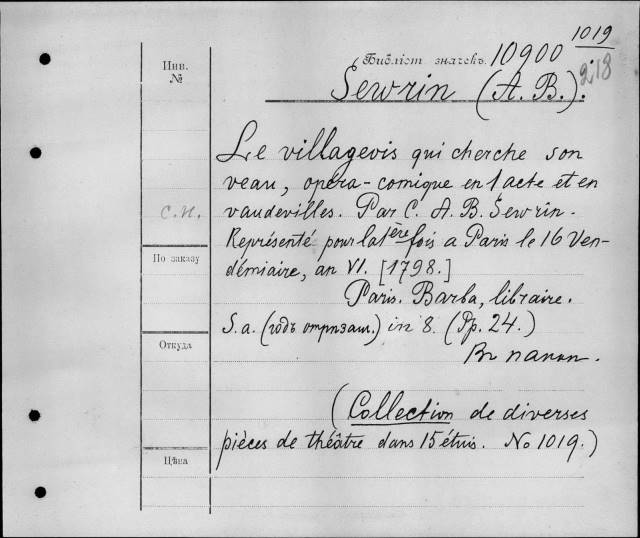 1019
Библіот. значекъ. 10900
218
Sewrin (A. B.).
Инв.
№
Le villageois qui cherche son
veau, opéra-comique en 1 acte et en
vaudevilles. Par C. A. B. Sewrin.
с.н.
Représenté pour la 1ère fois a Paris le 16 Ven-
démiaire, an VI. [1798.]
По заказу
Paris. Barba, libraire.
S. a. (годъ отрѣзан.) in 8. (Pp. 24.)
Откуда
Въ папкѣ.
(Collection de diverses
pièces de théâtre dans 15 étuis. No 1019.)
Цѣна